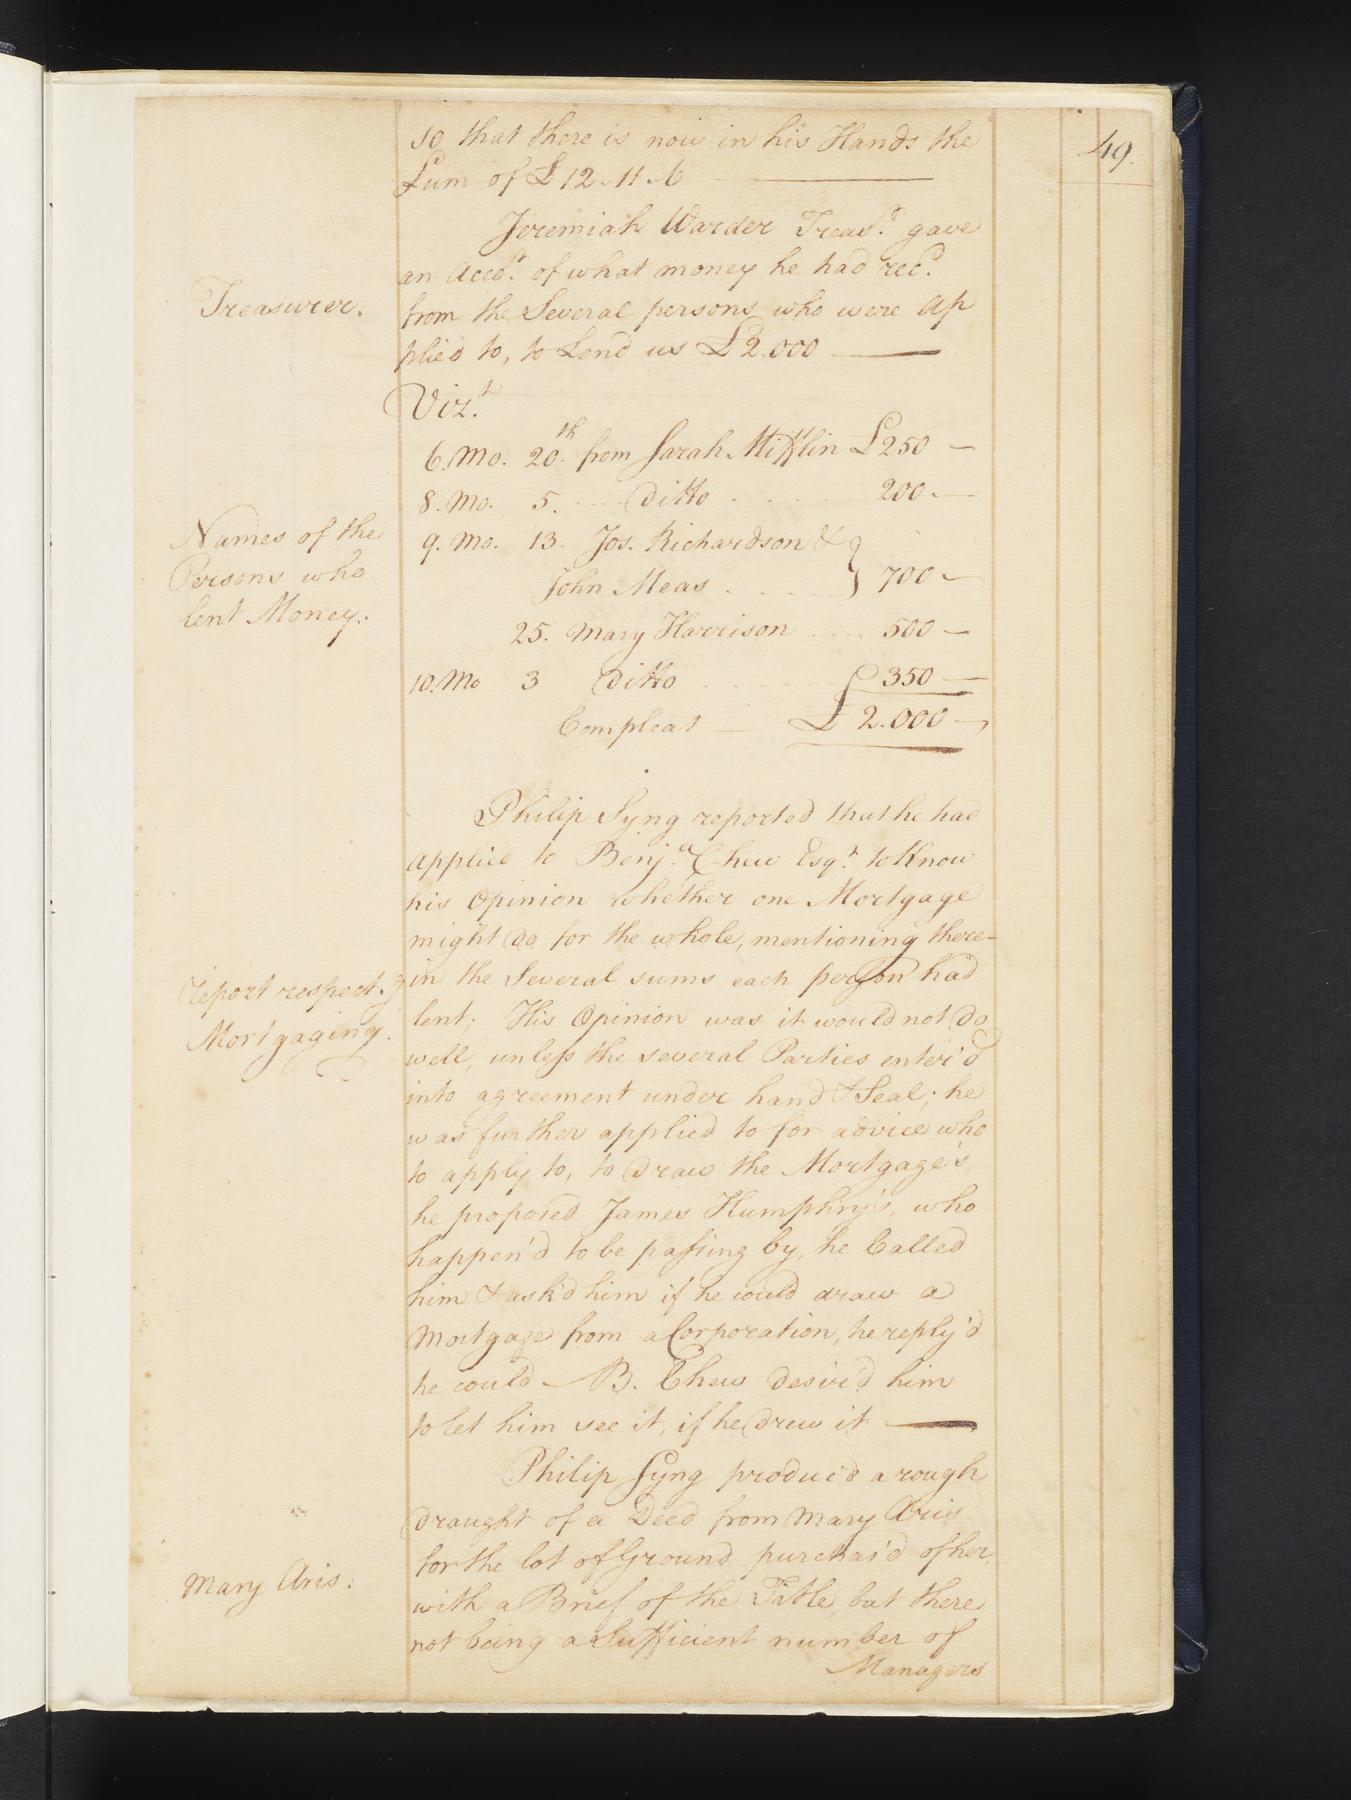 49.
so that there is now in his Hands the
Sum of £ 12..11..6
Jeremiah Warder Treasr. gave
an Accot. of what money he had recd.
Treasurer.
from the Several persons who were Ap
plied to, to Lend us £ 2.000
Vizt.
6. Mo. 20th. from Sarah Mifflin £ 250 —
8. Mo. 5. ... Ditto . . . . 200. —
Names of the
Persons who
lent Money.
9. Mo. 13. Jos. Richardson & }
John Meas . . . . } 700 —
25. Mary Harrison .... 500 —
10. Mo 3 Ditto . . . . £ 350 —
Compleat — £ 2.000 —
Philip Syng reported that he had
applied to Benja. Chew Esqr. to Know
his Opinion whether one Mortgage
might do for the whole, mentioning there-
Report respectg.
Mortgaging.
in the Several sums each person had
lent; His Opinion was it would not do
well, unless the several Parties enter'd
into agreement under hand & Seal; he
was further applied to for advice who
to apply to, to draw the Mortgage's,
he proposed James Humphry's, who
happen'd to be passing by, he Called
him & ask'd him if he could draw a
Mortgage from a Corporation, he reply'd
he could — B. Chew desir'd him
to let him see it, if he drew it —
Philip Syng produc'd a rough
draught of a Deed from Mary Aris
for the lot of Ground purchas'd of her,
Mary Aris.
with a Brief of the Title, but there
not being a Sufficient number of
Managers